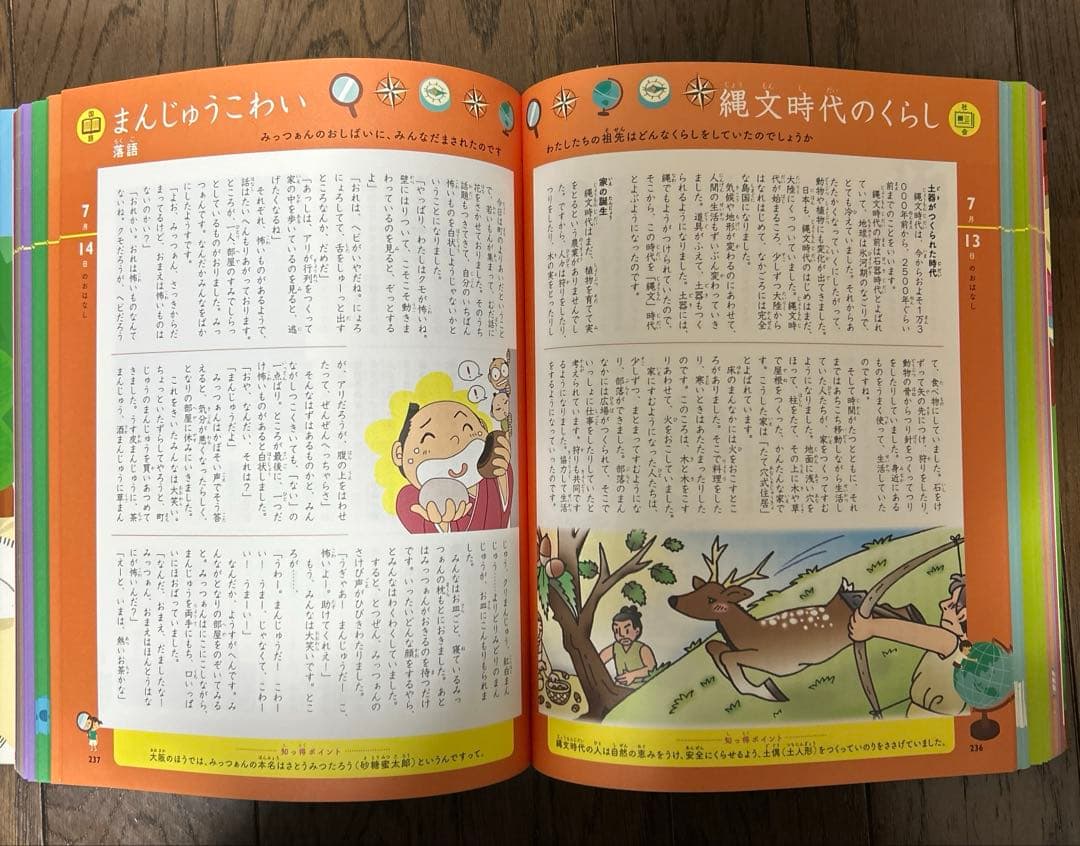 社会
縄文時代のくらし
わたしたちの祖先はどんなくらしをしていたのでしょうか
7月
13日のおはなし
土器がつくられた時代
縄文時代は、今からおよそ1万3
000年前から、2500年ぐらい
前までのことをいいます。
縄文時代の前は石器時代とよばれ
ていて、地球は氷河期のなごりで、
とても冷えていました。それからあ
たたかくなっていくにしたがって、
動物や植物にも変化が出てきました。
日本も、縄文時代のはじめはまだ、
大陸にくっついていました。縄文時
代が始まるころ、少しずつ大陸から
はなれはじめて、なかごろには完全
な島国になりました。
気候や地形が変わるのにあわせて、
人間の生活もずいぶん変わっていき
ました。道具がふえて、土器もつく
られるようになりました。土器には、
縄でもようがつけられていたので、
そこから、この時代を「縄文」時代
とよぶようになったのです。
家の誕生
縄文時代はまだ、植物を育てて実
をとるという農業がありませんでし
た。ですから、人々は狩りをしたり、
つりをしたり、木の実をとったりし
て、食べ物にしていました。石をけ
ずって矢の先につけ、狩りをしたり、
動物の骨からつり針をつくってつり
をしたりしていました。身近にある
ものをうまく使って、生活していた
のですね。
そして時間がたつとともに、それ
まではあちこち移動しながら生活し
ていた人たちが、家をつくってすむ
ようになりました。地面に浅い穴を
ほって、柱をたて、その上に木や草
で屋根をつくった、かんたんな家で
す。こうした家は「たて穴式住居」
とよばれています。
床のまんなかには火をおこすとこ
ろがありました。そこで料理をした
り、寒いときはあたたまったりした
のです。このころは、木と木をこす
りあわせて、火をおこしていました。
家にすむようになった人たちは、
少しずつ、まとまってすむようにな
り、部落ができました。部落のまん
なかには広場がつくられて、そこで
いっしょに仕事をしたりしていたと
考えられています。狩りも共同です
るようになりました。協力して生活
をするようになっていったのです。
知っ得ポイント
縄文時代の人は自然の恵みをうけ、安全にくらせるよう、土偶(土人形)をつくっていのりをささげていました。
236
国語
まんじゅうこわい
落語
みっつぁんのおしばいに、みんなだまされたのです
7月
14日のおはなし
今日は町のよりあいだということ
で、若いもんが集まって、むだ話に
花をさかせておりました。そのうち
話題もつきてきて、自分のいちばん
怖いものを白状しようじゃないかと
いうことになりました。
「やっぱり、わたしはクモが怖いね。
壁にはりついて、こそこそ動きま
わっているのを見ると、ぞっとする
よ」
「おれは、ヘビがいやだね。にょろ
にょろしてて、舌をしゅーっと出す
ところなんか、だめだ」
「あっしは、アリが行列をつくって
家の中を歩いているのを見ると、逃
げたくなるね」
それぞれ、怖いものがあるようで、
話はたいへんもりあがっております。
ところが、部屋のすみでしらっ
としているものがおりました。みっ
つぁんです。なんだかみんなをばか
にしたようすです。
「よお、みっつぁん、さっきからだ
まってるけど、おまえは怖いものは
ないのかい?」
「おれかい、おれは怖いものなんて
ないね。そりゃそうだろうが、ヘビだろう
が、アリだろうが、腹の上をはわせ
たって、ぜんぜんへっちゃらさ」
そんなはずはあるものかと、みん
ながしつこくきいても、「ない」の
一点ばり。ところが最後に、一つだ
け怖いものがあると白状しました。
「おや、なんだい、それは?」
「まんじゅうだよ」
みっつぁんはかぼそい声でそう答
えると、気分が悪くなったらしく、
となりの部屋に休みにいきました。
これをきいたみんなは大笑い。
ちょっといたずらしてやろうと、町
じゅうのまんじゅうを買いあつめて
きました。うす皮まんじゅうに、茶
まんじゅう、酒まんじゅうに草まん
じゅう、クリまんじゅう、紅白まん
じゅう……よりどりみどりのまん
じゅうが、お皿にこんもりもられま
した。
みんなはお皿ごと、寝ているみっ
つぁんの枕もとにおきました。あと
はみっつぁんがおきるのを待つだけ
です。いったいどんな顔をするやら、
とみんなはわくわくしていました。
すると、とつぜん、みっつぁんの
さけび声がひびきわたりました。
「うぎゃあー まんじゅうだー こ、
怖いよー。助けてくれえー」
もう、みんなは大笑いです。とこ
ろが……
「うわー。まんじゅうだー こわー
いー! うまー、じゃなくて、こわー
いー! うまいー」
なんだか、ようすがへんです。み
んながとなりの部屋をのぞいてみる
と。みっつぁんはにこにこしながら、
まんじゅうを両手にもち、口いっぱ
いにほおばっていました。
「なんだ、おまえ、だましたなー
みっつぁん、おまえはほんとうはな
にが怖いんだ?」
「えーと、いまは、熱いお茶かな」
知っ得ポイント
大阪のほうでは、みっつぁんの本名はさとうみつたろう(砂糖蜜太郎)というんですって。
237